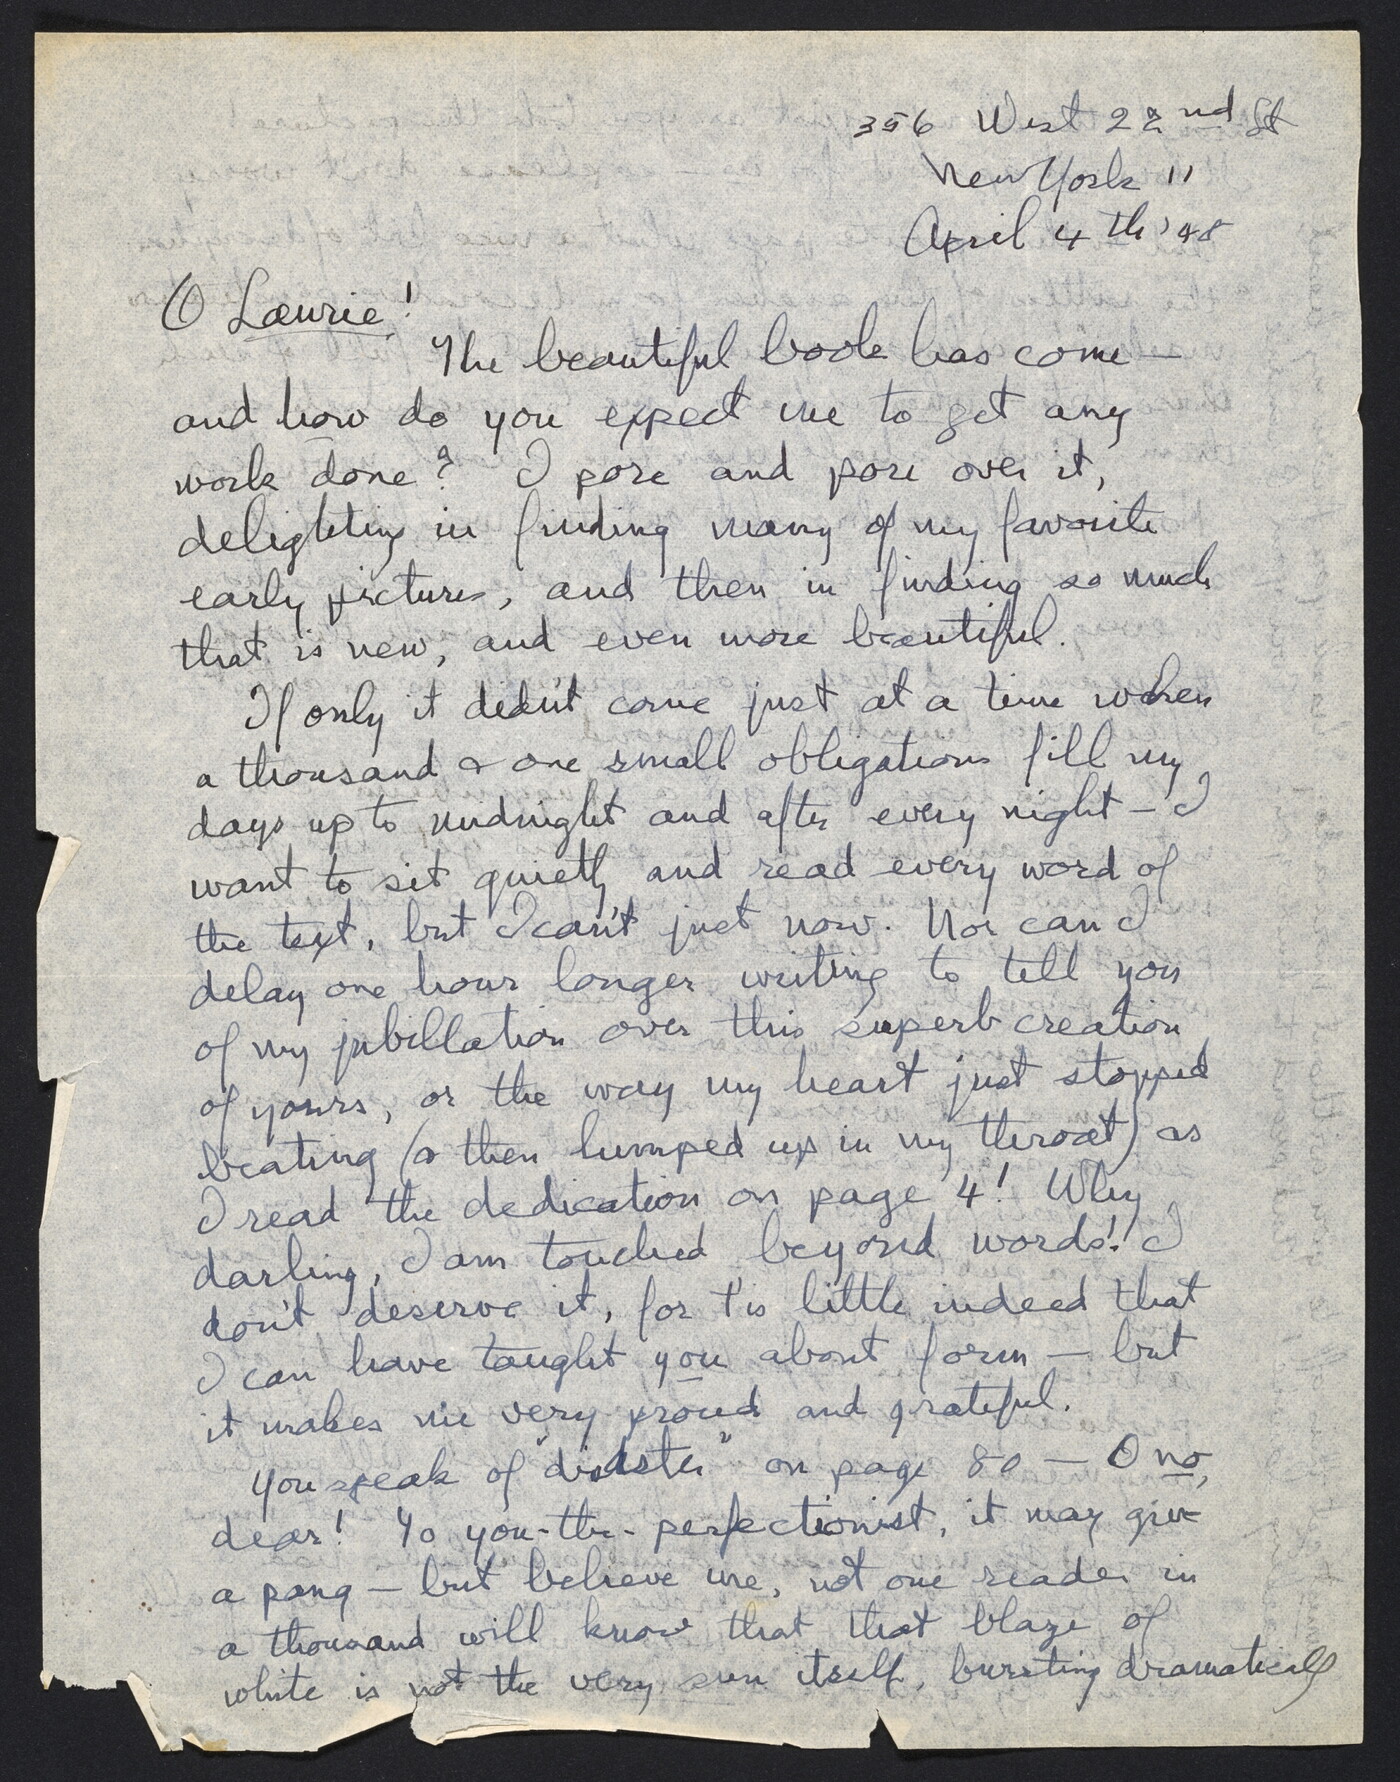 356 West 22nd St
New York 11
April 4th '48
O Laurie!
The beautiful book has come —
and how do you expect me to get any
work done? I pore and pore over it,
delighting in finding many of my favorite
early pictures, and then in finding so much
that is new, and even more beautiful.
If only it didn't come just at a time when
a thousand & one small obligations fill my
days up to midnight and after every night — I
want to sit quietly and read every word of
the text, but I can't just now. Nor can I
delay one hour longer writing to tell you
of my jubillation over this superb creation
of yours, or the way my heart just stopped
beating (& then lumped up in my throat) as
I read the dedication on page 4! Why
darling, I am touched beyond words!! I
don't deserve it, for t'is little indeed that
I can have taught you about form — but
it makes me very proud and grateful.
You speak of "disaster" on page 80 — O no,
dear! To you-the-perfectionist, it may give
a pang — but believe me, not one reader in
a thousand will know that that blaze of
white is not the very sun itself, bursting dramatically